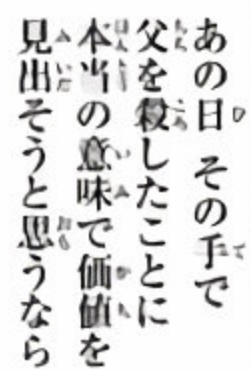 あの日 その手で
父を殺したことに
本当の意味で価値を
見出そうと思うなら